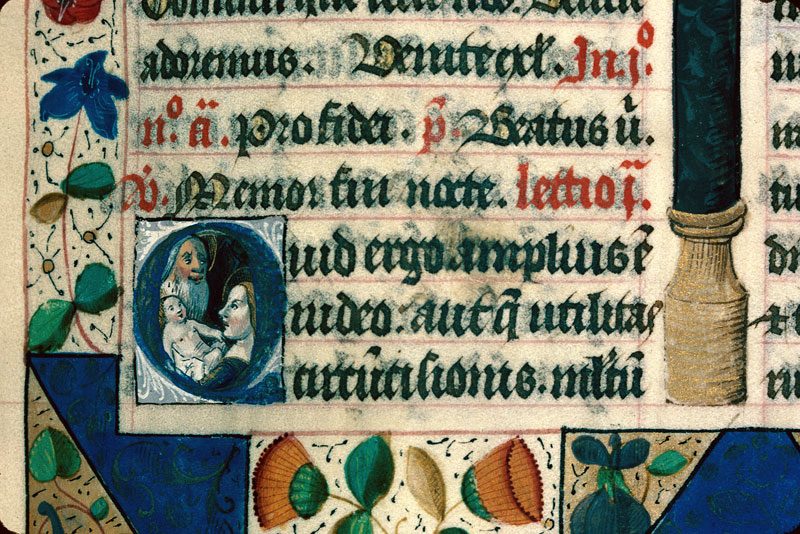 adoremus. Venite exl̄. In .j.º
n.º a̅. Pro fidei. p̅. Beatus u̇.
V̇. Memor fui nocte. lectio j̅.
Quid ergo amplius ē
iudeo. aut q̄ utilitas
circūcisionis. ml̄tū